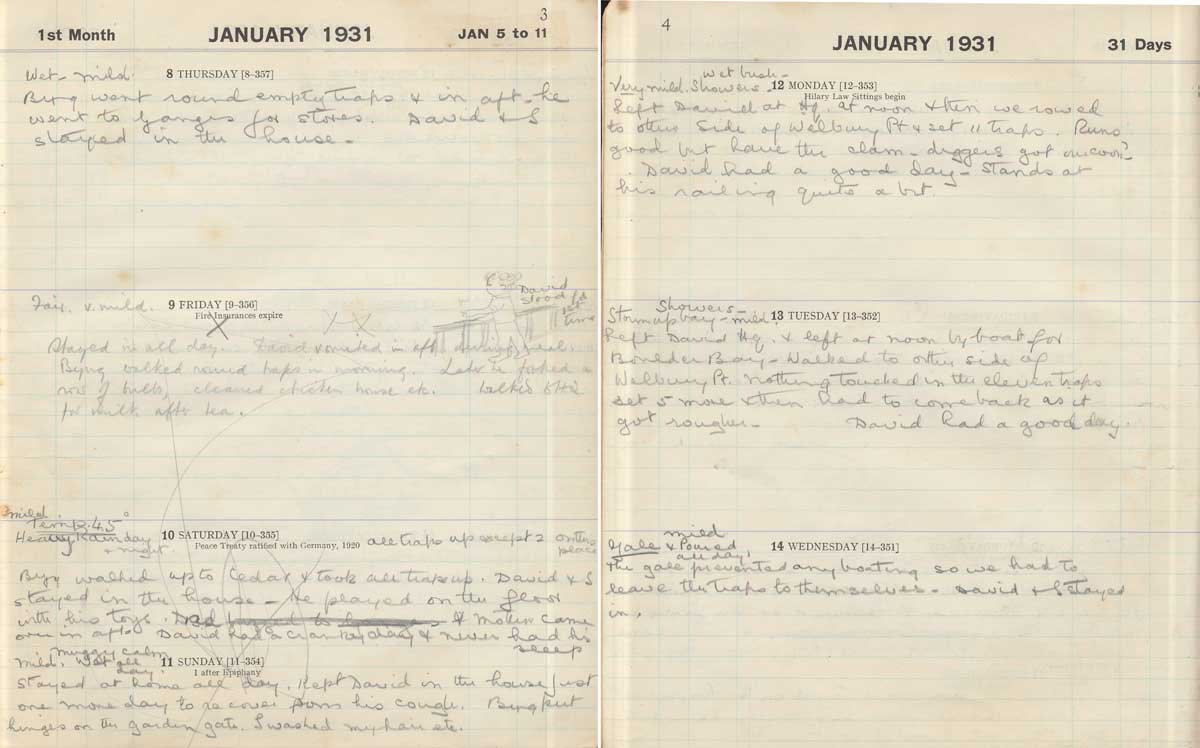 3
1st Month JANUARY 1931 JAN 5 to 11
Wet - mild. 8 THURSDAY [8-357]
Byng went round empty traps & in aft. he
went to Ganges for stores. David & I
stayed in the house -
Fair. v. mild. 9 FRIDAY [9-356]
Fire Insurances expire
David
stood
1st
time
Stayed in all day. David vomited in aft. during meal.
Byng walked round traps in morning. Later he forked a
row of bulbs, cleaned chicken house etc. walked
for milk after tea.
mild.
Temp. 45°
Heavy Rain day 10 SATURDAY [10-355] all traps up except 2 on this
& night. Peace Treaty ratified with Germany, 1920 place
Byng walked up to Cedar & took all traps up. David & I
stayed in the house - He played on the floor
with his toys. & Mother came
over in aft. David had a cranky day & never had his
sleep
muggy calm
mild. Wet all 11 SUNDAY [11-354]
day. 1 after Epiphany
Stayed at home all day. Kept David in the house just
one more day to recover from his cough. Byng put
hinges on the garden gate. I washed my hair etc.
4
JANUARY 1931 31 Days
wet bush -
Very mild. Showers - 12 MONDAY [12-353]
Hilary Law Sittings begin
Left David at Hq. at noon & then we rowed
to other side of Welbury Pt & set 11 traps. Runs
good but have the clam-diggers got 'um coon?
David had a good day - Stands at
his railing quite a bit.
Showers -
Storm up bay - mild. 13 TUESDAY [13-352]
Left David Hq. & left at noon by boat for
Boulder Bay - Walked to other side of
Welbury Pt. nothing touched in the eleven traps
set 5 more & then had to come back as it
got rougher - David had a good day.
mild
Gale & Poured 14 WEDNESDAY [14-351]
all day.
The gale prevented any boating so we had to
leave the traps to themselves - David & I stayed
in.